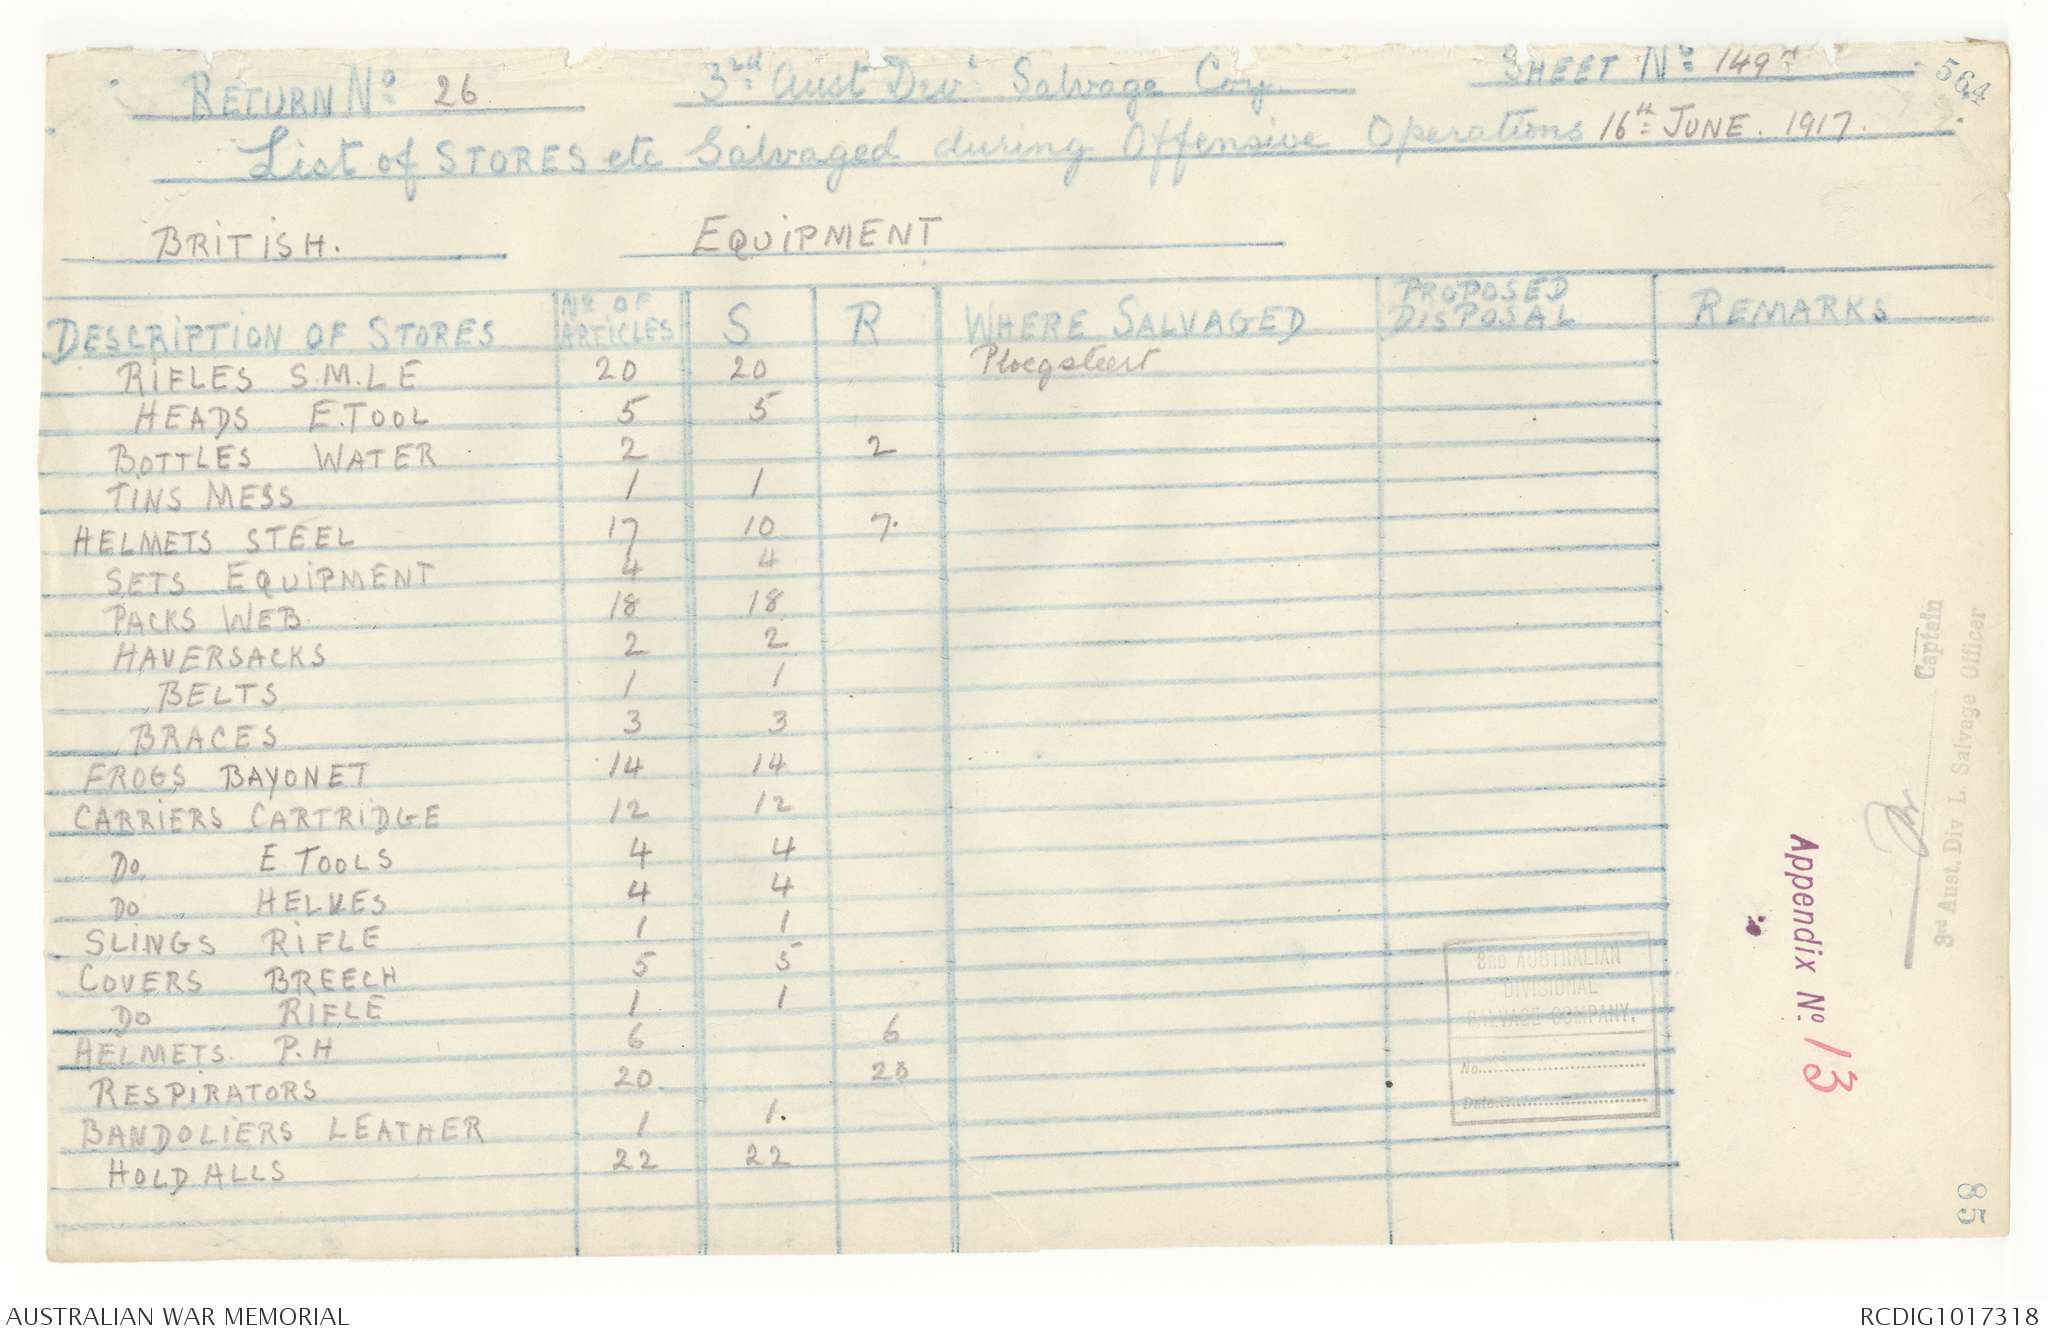 RETURN No 26 3rd Aust Div Salvage Coy. SHEET No 149
564
List of STORES etc Salvaged during Offensive Operations 16th JUNE. 1917.
BRITISH. EQUIPMENT
DESCRIPTION OF STORES No OF ARTICLES S R WHERE SALVAGED PROPOSED DISPOSAL REMARKS
RIFLES S.M.L E 20 20 Ploegsteert
HEADS E.TOOL 5 5
BOTTLES WATER 2 2
TINS MESS 1 1
HELMETS STEEL 17 10 7.
SETS EQUIPMENT 4 4
PACKS WEB 18 18
HAVERSACKS 2 2
BELTS 1 1
BRACES 3 3
FROGS BAYONET 14 14
CARRIERS CARTRIDGE 12 12
Do E TOOLS 4 4
Do HELVES 4 4
SLINGS RIFLE 1 1
COVERS BREECH 5 5
Do RIFLE 1 1
HELMETS. P.H 6 6
RESPIRATORS 20 20
BANDOLIERS LEATHER 1 1.
HOLD ALLS 22 22
AUSTRALIAN
DIVISIONAL
SALVAGE COMPANY.
No.
Date
Appendix No. 13
Captain
3rd Aust. Div L. Salvage Officer
85
AUSTRALIAN WAR MEMORIAL RCDIG1017318